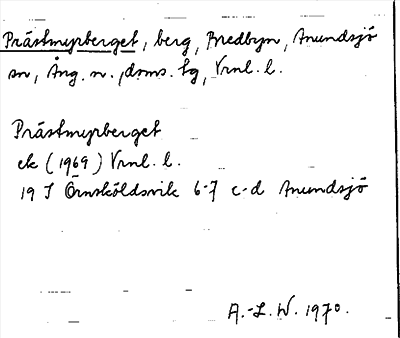 Prästmyrberget, berg, Bredbyn, Anundsjö
sn, Ång. n., dsms. tg, Vrnl. l.
Prästmyrberget
ek (1969) Vrnl. l.
19 J Örnsköldsvik 6-7 c-d Anundsjö
A.-L. W. 1970.